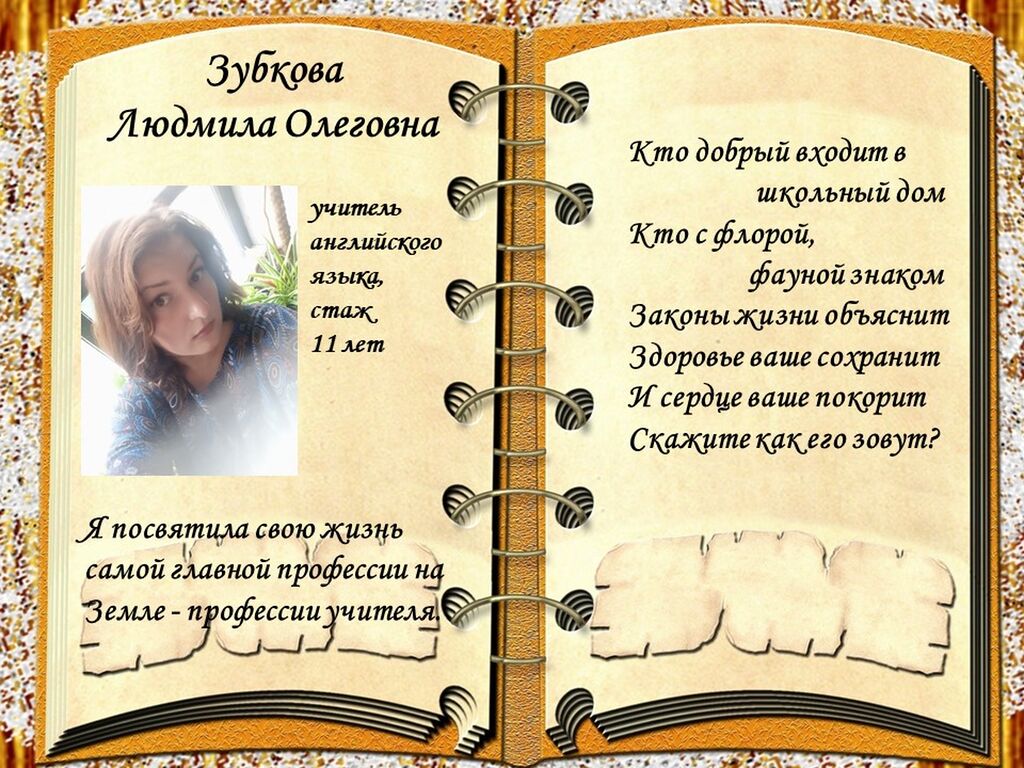 Зубкова
Людмила Олеговна
учитель
английского
языка,
стаж
11 лет
Я посвятила свою жизнь
самой главной профессии на
Земле - профессии учителя.
Кто добрый входит в
школьный дом
Кто с флорой,
фауной знаком
Законы жизни объяснит
Здоровье ваше сохранит
И сердце ваше покорит
Скажите как его зовут?